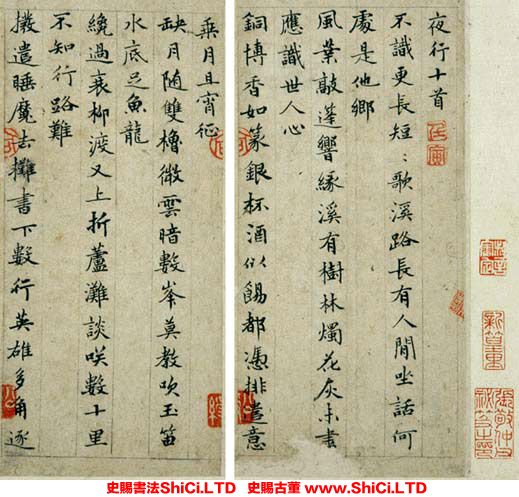 夜行十首
不識更長短〻歌溪路長有人閒坐話何
處是他鄉
風葉敲蓬響緣溪有樹林燭花灰未書
應識世人心
銅博香如篆銀杯酒似餳都憑排遣意
乘月且宵征
缺月隨雙櫓微雲暗數峯莫教吹玉笛
水底足魚龍
纔過衰柳渡又上折蘆灘談咲數十里
不知行路難
撥遣睡魔去攤書下數行英雄多角逐
史賜書法ShiCi.LTD 史賜古董 www.ShiCi.LTD